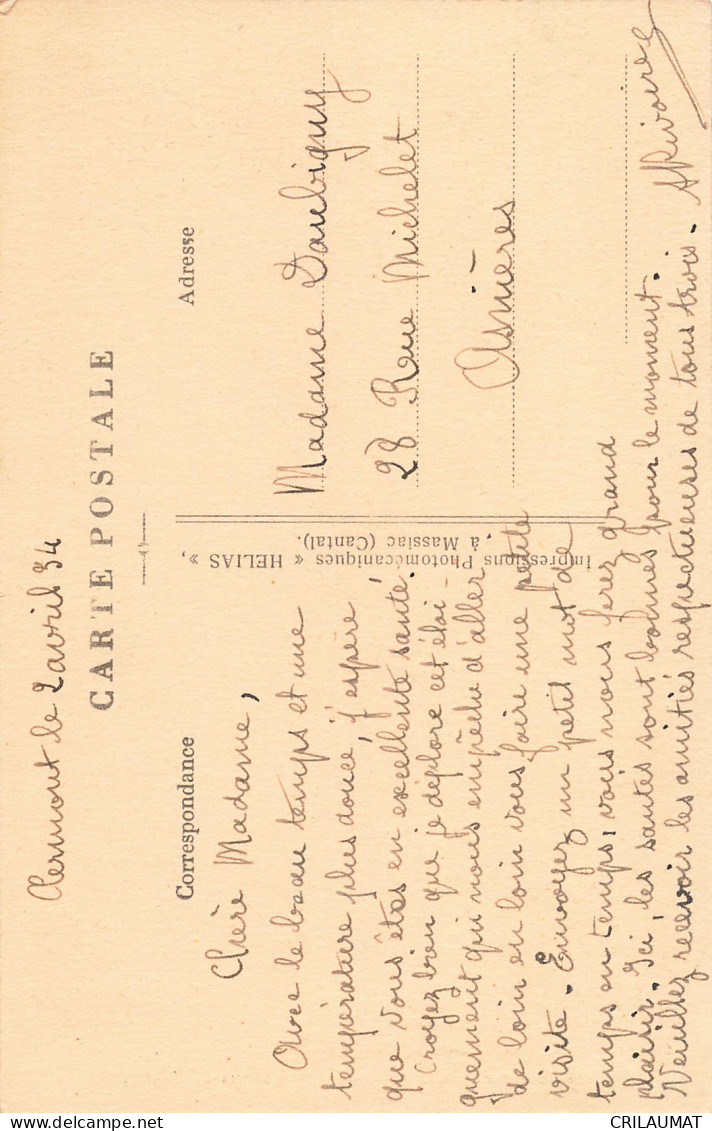 Clermont le 2 avril 34
CARTE POSTALE
Correspondance
Adresse
Chère Madame,
Avec le beau temps et une
température plus douce, j'espère
que vous êtes en excellente santé.
Croyez bien que je déplore cet éloi-
gnement qui nous empêche d'aller
de loin en loin vous faire une petite
visite. Envoyez un petit mot de
temps en temps, vous nous ferez grand
plaisir. Ici, les santés sont bonnes pour le moment.
Veuillez recevoir les amitiés respectueuses de tous trois. A Rivoire
Impressions Photomécaniques « HELIAS »,
à Massiac (Cantal).
Madame Daubigny
28 Rue Michelet
Asnières
delcampe.net
CRILAUMAT